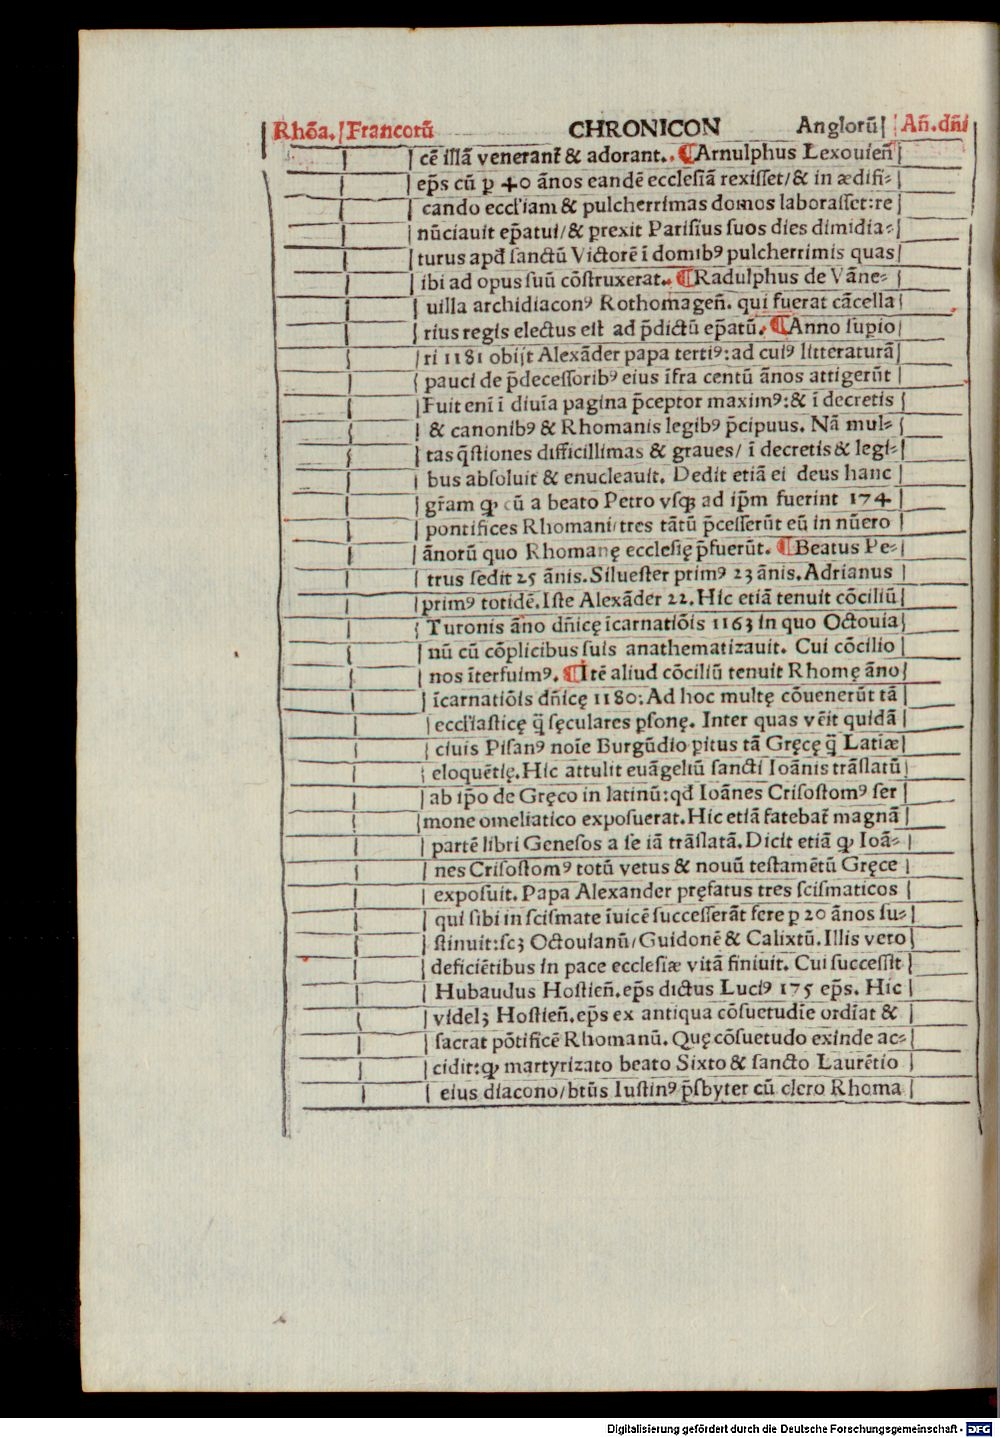 Rhōa. Francorū CHRONICON Anglorū Añ.dñi
cē illā venerant̄ & adorant. ¶Arnulphus Lexouieñ
ep̄s cū ꝑ 40 ānos eandē ecclesiā rexisset/& in ædifi⸗
cando eccl'iam & pulcherrimas domos laborasset:re
nūciauit ep̄atui/& ꝑrexit Parisius suos dies dimidia⸗
turus apd̄ sanctū Victorē ī domibꝰ pulcherrimis quas
ibi ad opus suū cōstruxerat. ¶Radulphus de Vāne⸗
uilla archidiaconꝰ Rothomageñ. qui fuerat cācella
rius regis electus est ad p̄dictū ep̄atū. ¶Anno supio
ri 1181 obijt Alexāder papa tertiꝰ:ad cuiꝰ litteraturā
pauci de p̄decessoribꝰ eius īfra centū ānos attigerūt
Fuit enī ī diuia pagina p̄ceptor maximꝰ:& ī decretis
& canonibꝰ & Rhomanis legibꝰ p̄cipuus. Nā mul⸗
tas q̄stiones difficillimas & graues/ ī decretis & legi⸗
bus absoluit & enucleauit. Dedit etiā ei deus hanc
gr̄am ꝙ cū a beato Petro vsqꝫ ad ip̄m fuerint 174
pontifices Rhomani/tres tātū p̄cesserūt eū in nūero
ānorū quo Rhomanę ecclesię p̄fuerūt. ¶Beatus Pe⸗
trus sedit 25 ānis.Siluester primꝰ 23 ānis.Adrianus
primꝰ totidē.Iste Alexāder 22.Hic etiā tenuit cōciliū
Turonis āno dn̄icę īcarnatiōis 1163 in quo Octouia
nū cū cōplicibus suis anathematizauit. Cui cōcilio
nos īterfuimꝰ. ¶Itē aliud cōciliū tenuit Rhomę āno
īcarnatiōis dn̄icę 1180:Ad hoc multę cōuenerūt tā
eccl'iasticę q̄ sęculares ꝑsonę. Inter quas vēit quidā
ciuis Pisanꝰ noīe Burgūdio ꝑitus tā Gręcę q̄ Latiæ
eloquētię.Hic attulit euāgeliū sancti Ioānis trāslatū
ab ip̄o de Gręco in latinū:qd̄ Ioānes Crisostomꝰ ser
mone omeliatico exposuerat.Hic etiā fatebat̄ magnā
partē libri Genesos a se iā trāslatā.Dicit etiā ꝙ Ioā⸗
nes Crisostomꝰ totū vetus & nouū testamētū Gręce
exposuit.Papa Alexander pręfatus tres scismaticos
qui sibi in scismate īuicē successerāt fere ꝑ 20 ānos su⸗
stinuit:scꝫ Octouianū/Guidonē & Calixtū.Illis vero
deficiētibus in pace ecclesiæ vitā finiuit.Cui successit
Hubaudus Hostieñ.ep̄s dictus Luciꝰ 175 ep̄s. Hic
videlꝫ Hostieñ.ep̄s ex antiqua cōsuetudīe ordīat &
sacrat pōtificē Rhomanū.Quę cōsuetudo exinde ac⸗
cidit:ꝙ martyrizato beato Sixto & sancto Laurētio
eius diacono/btūs Iustinꝰ p̄sbyter cū clero Rhoma
Digitalisierung gefördert durch die Deutsche Forschungsgemeinschaft - DFG